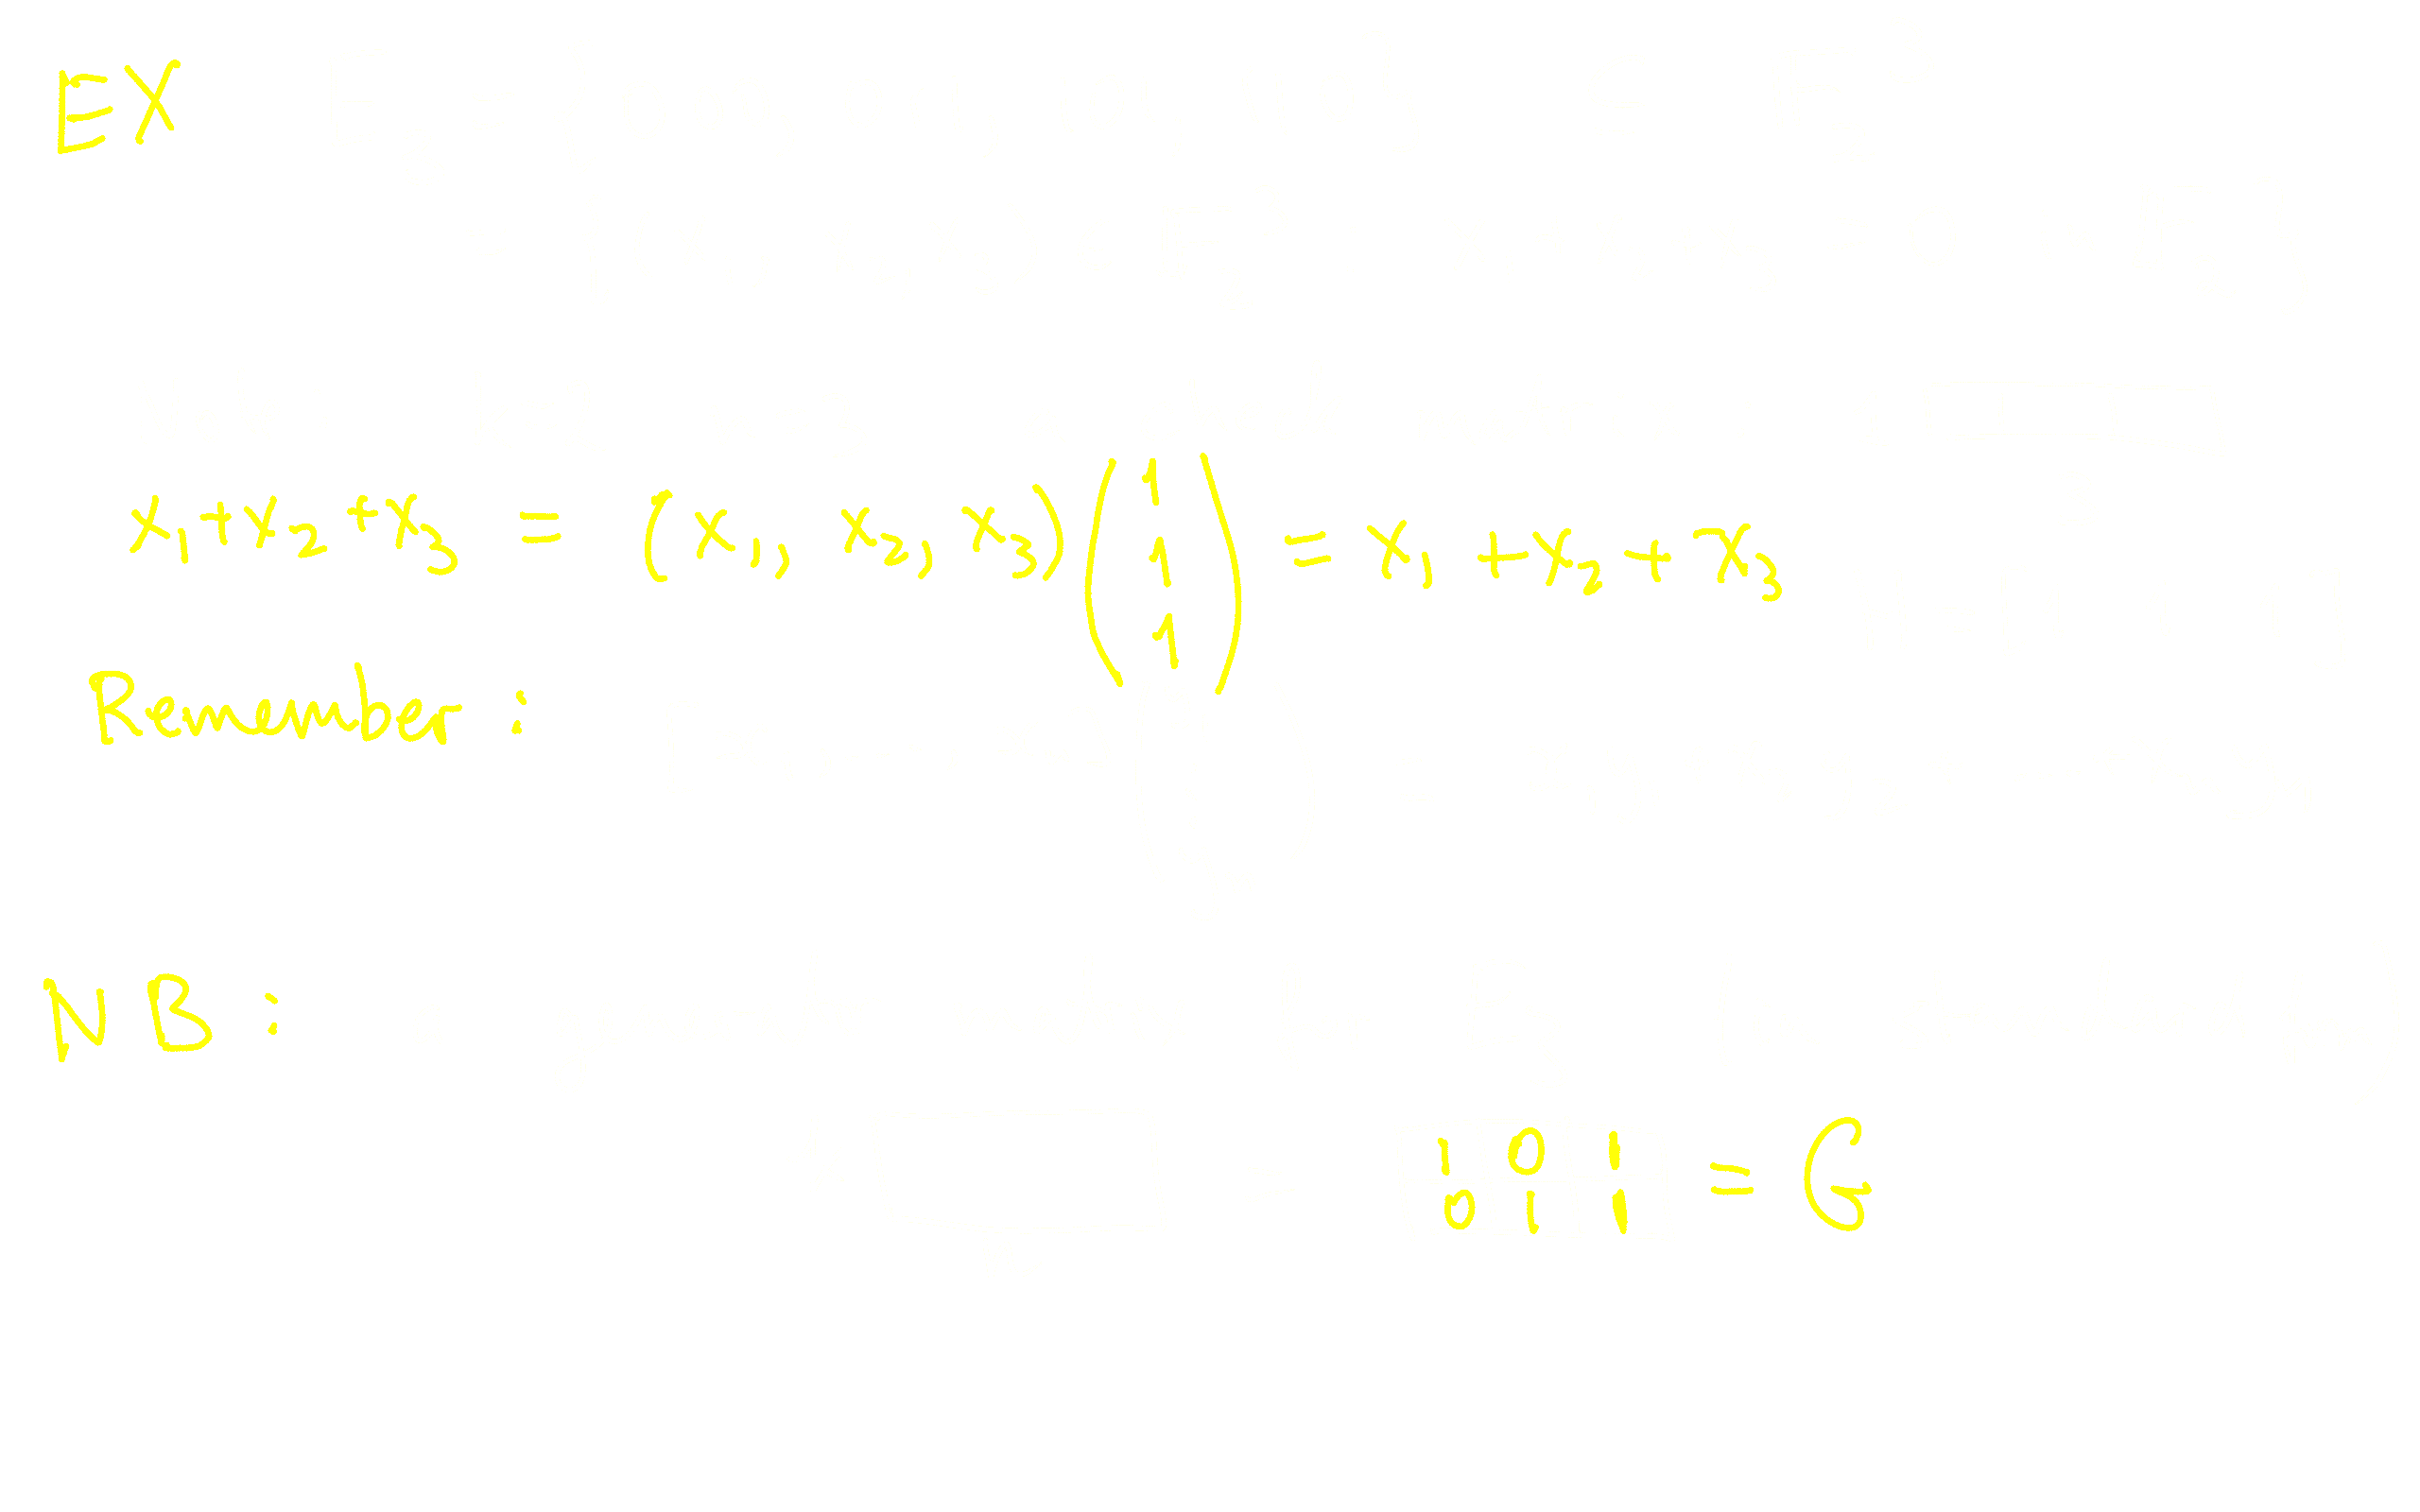 EX
x₁+x₂+x₃ = (x₁, x₂, x₃)(1 1 1) = x₁+x₂+x₃
Remember:
NB:
1 0 1
0 1 1 = G